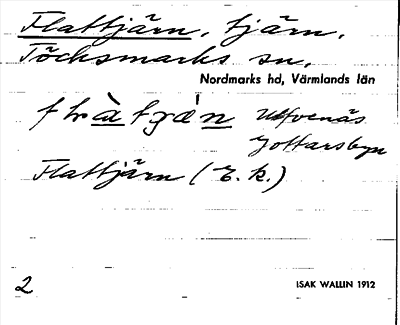 Flattjärn, tjärn.
Töcksmarks sn.
Nordmarks hd, Värmlands län
Utfvenäs
Jottarsbyn
Flattjärn (E. k.)
2
ISAK WALLIN 1912